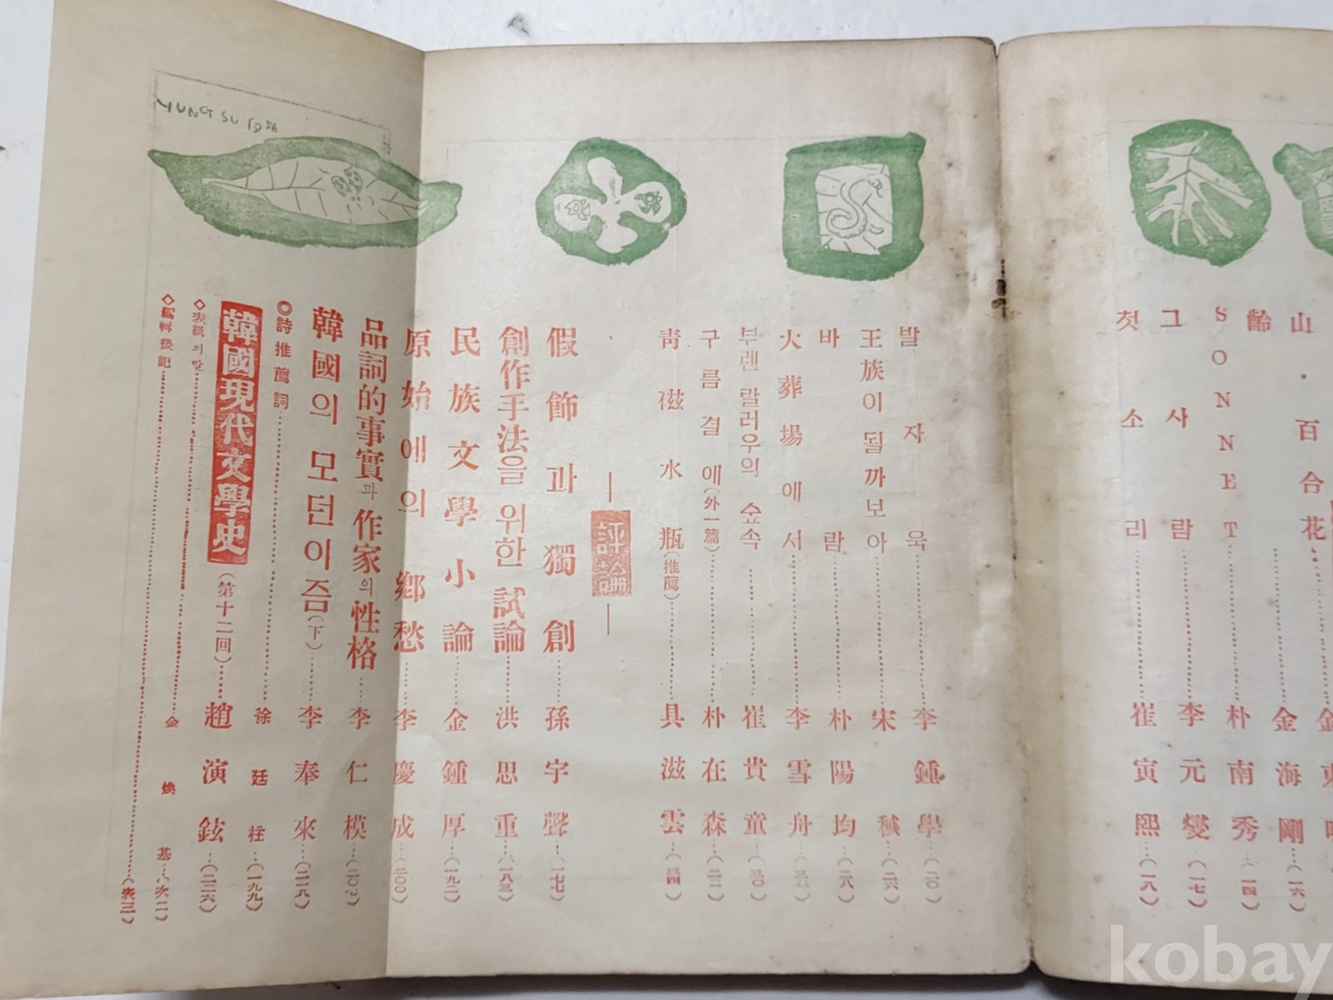 YUNG SU 1956
山・百合花…金東
齢 金海剛…(一六)
SONNET 朴南秀…(一四)
그사람……李元燮…(一七)
첫소리……崔寅熙…(一八)
발자욱……李鍾學…(二〇)
王族이 될까보아……宋稶…(二六)
바람……朴陽均…(二八)
火葬場에서……李雪舟
부렌 랄러우의 숲속……崔貴童…(三〇)
구름결에(外一篇)……朴在森…(二二)
靑磁水瓶(推薦)……具滋雲…(二四)
評論
假飾과 獨創……孫宇聲…(一七七)
創作手法을 위한 試論……洪思重…(一八三)
民族文學小論……金鍾厚…(一九二)
原始에의 鄕愁……李慶成…(二〇〇)
品詞的事實과 作家의 性格……李仁模
韓國의 모던이즘(下)……李奉來…(二一八)
◎詩推薦詞……徐廷柱…(一九九)
韓國現代文學史(第十二回)……趙演鉉…(二二六)
◇表紙의 말……金煥基
◇編輯後記
kobay